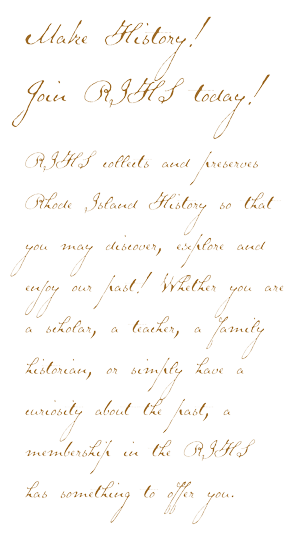 Make History!
Join RIHS today!
RIHS collects and preserves
Rhode Island History so that
you may discover, explore and
enjoy our past! Whether you are
a scholar, a teacher, a family
historian, or simply have a
curiosity about the past, a
membership in the RIHS
has something to offer you.